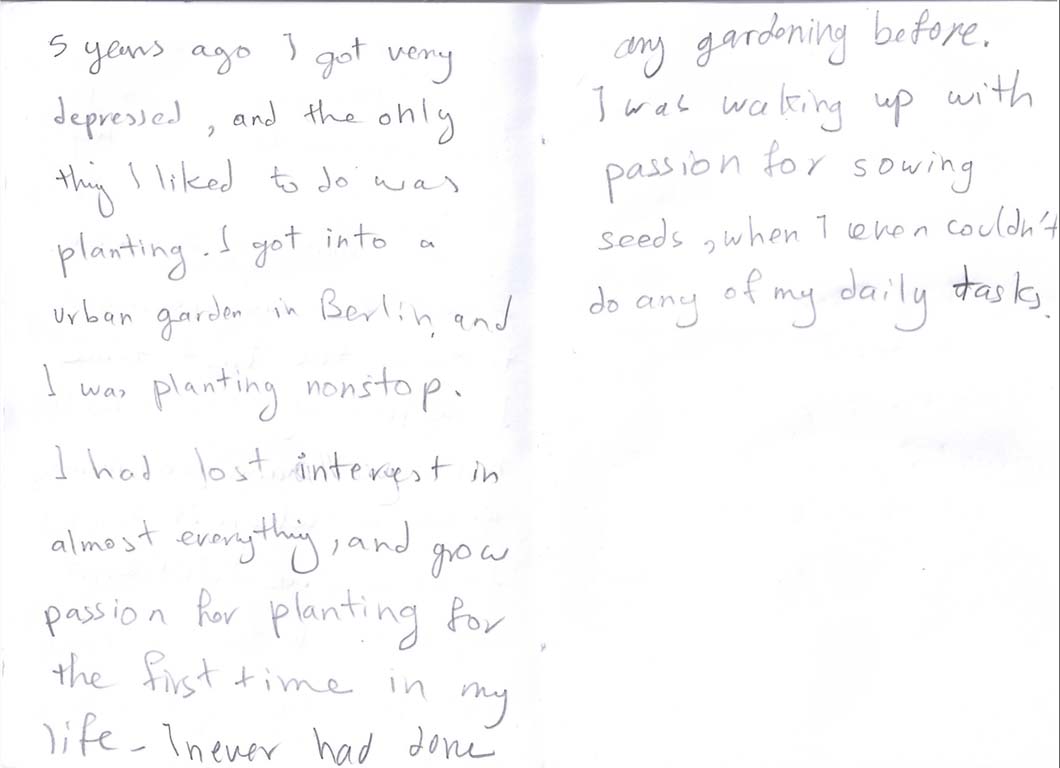 5 years ago I got very
depressed, and the only
thing I liked to do was
planting. I got into a
urban garden in Berlin, and
I was planting nonstop.
I had lost interest in
almost everything, and grow
passion for planting for
the first time in my
life - I never had done
any gardening before.
I was waking up with
passion for sowing
seeds, when I even couldn't
do any of my daily tasks.